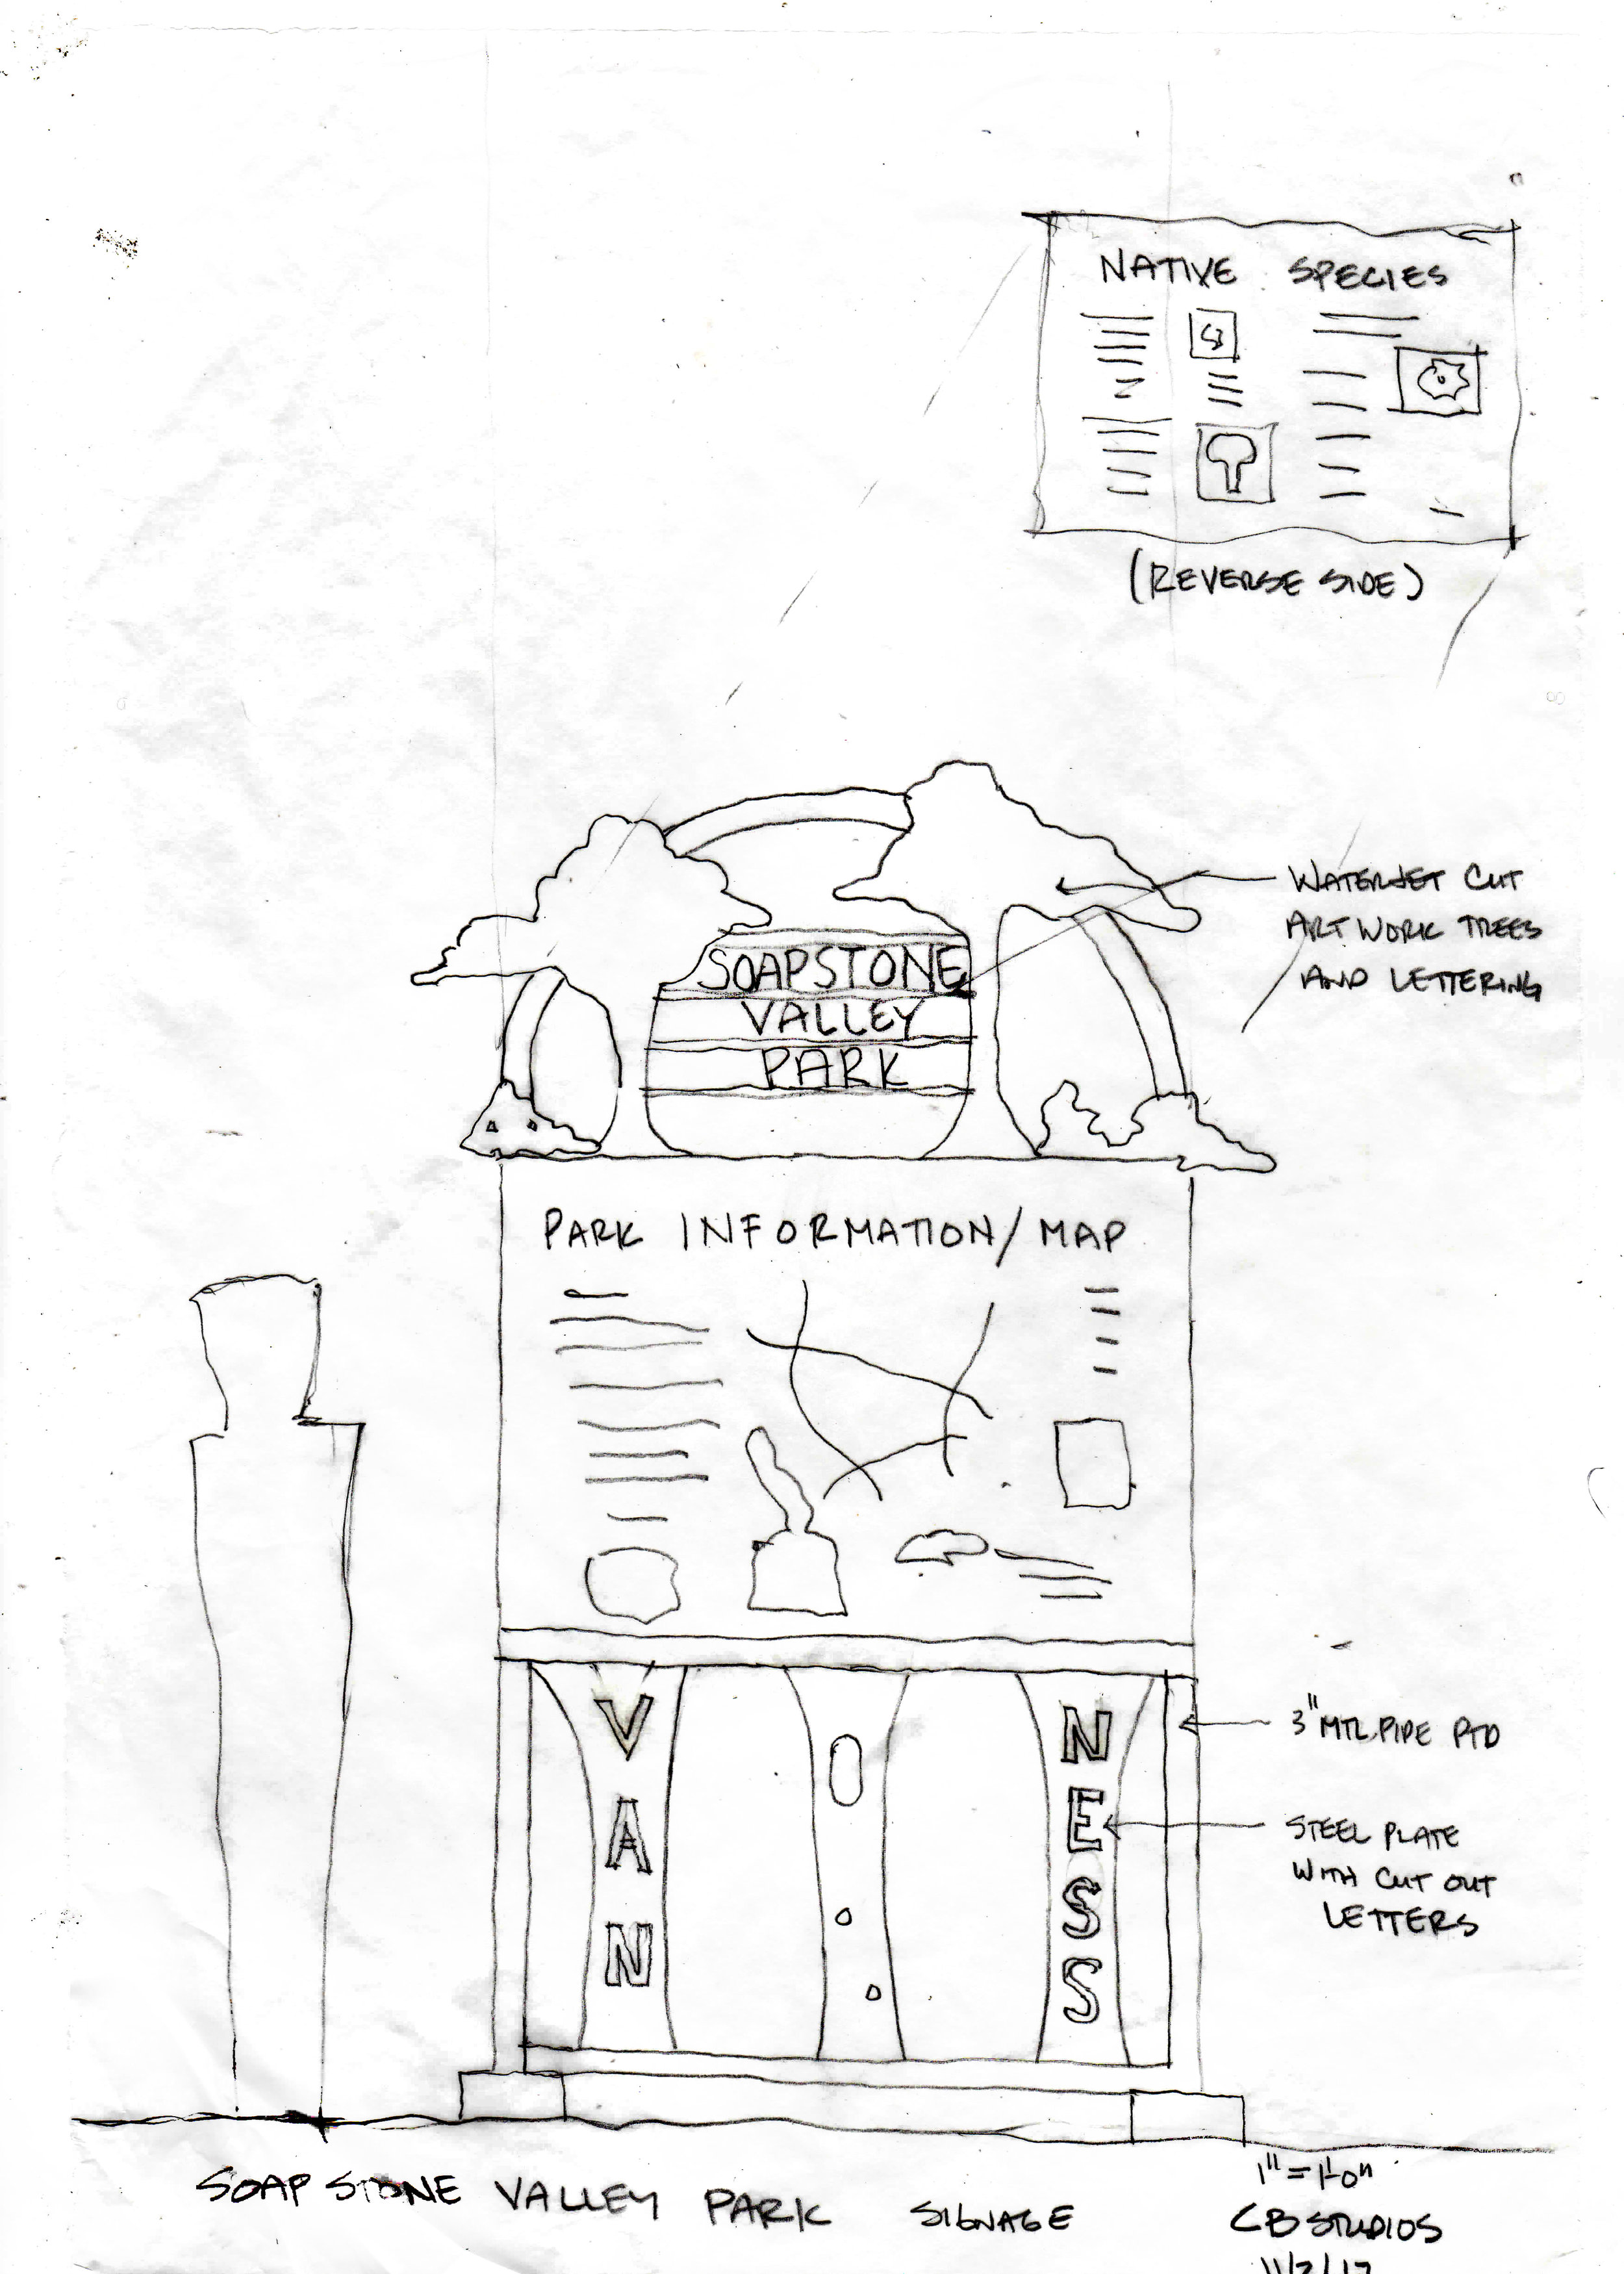 NATIVE SPECIES
(REVERSE SIDE)
WATERJET CUT
ARTWORK TREES
AND LETTERING
SOAPSTONE
VALLEY
PARK
PARK INFORMATION/MAP
VAN
NESS
3" MTL PIPE PTD
STEEL PLATE
WITH CUT OUT
LETTERS
1" = 1'-0"
SOAPSTONE VALLEY PARK SIGNAGE
CB STUDIOS